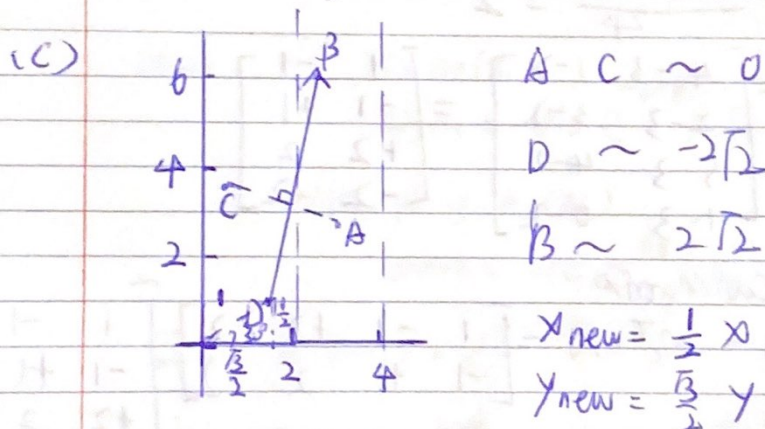 (C)
B
6
4
C
A
2
1
D
1/2
√3/2 2 4
A C ~ 0
D ~ -2√2
B ~ 2√2
x new = 1/2 x
y new = √3/2 y